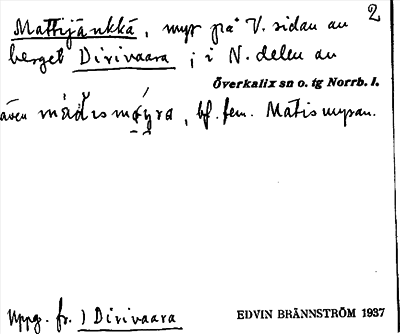 2
Mattijänkkä, myr på V. sidan av
berget Dirivaara ; i N. delen av
Överkalix sn o. tg Norrb. l.
även mádismýra, bf. fem. Matismyran.
Uppg. fr. ) Dirivaara
EDVIN BRÄNNSTRÖM 1937